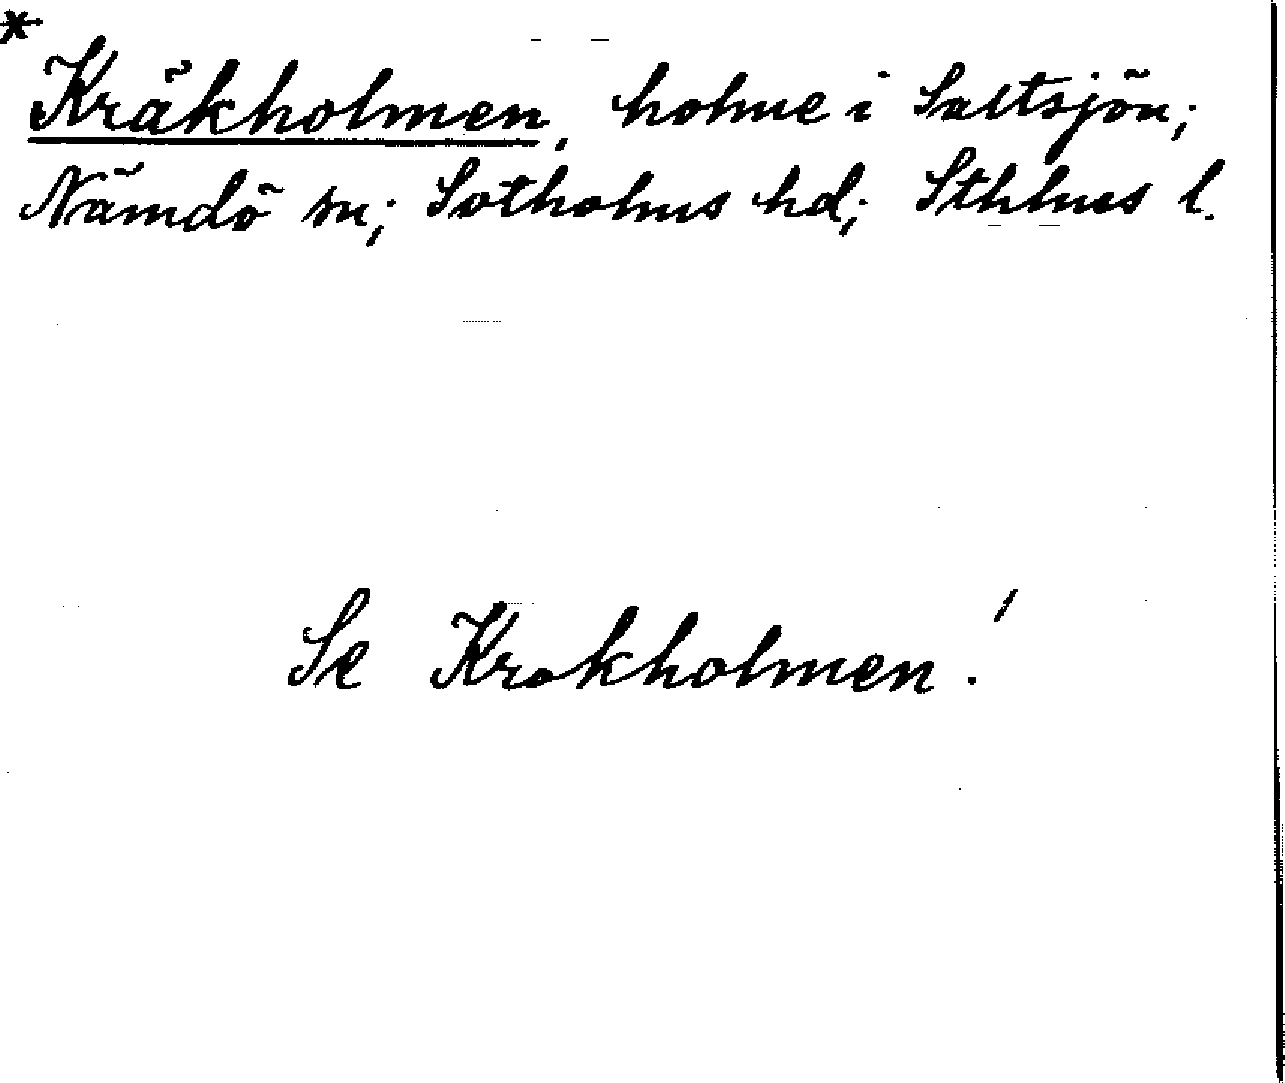 *
Kräkholmen, holme i Saltsjön;
Nämdö sn; Sotholms hd; Sthlms l.
Se Krokholmen!